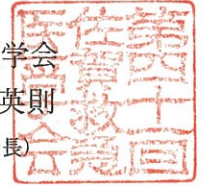 学会
英則
長）
第四十一回
佐賀救急
医学会